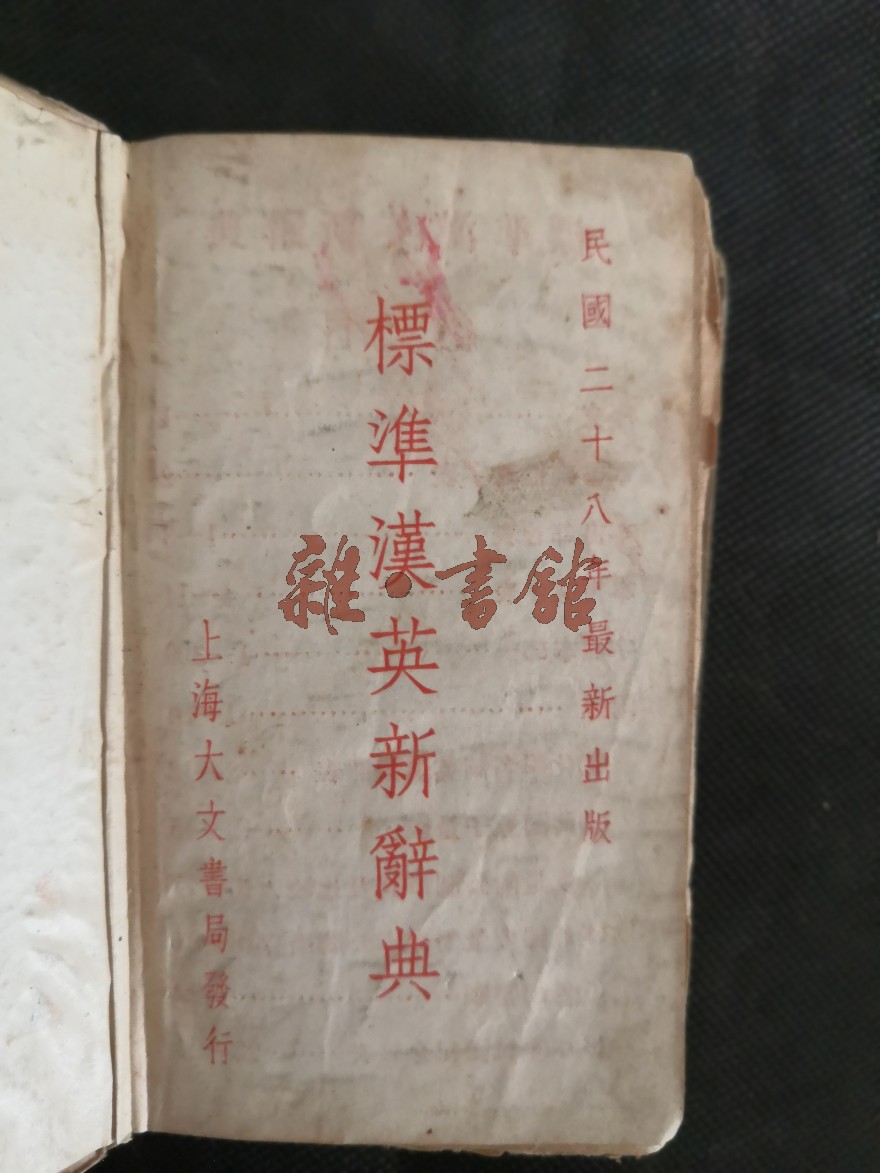 民國二十八年最新出版
標準漢英新辭典
上海大文書局發行
雜·書館